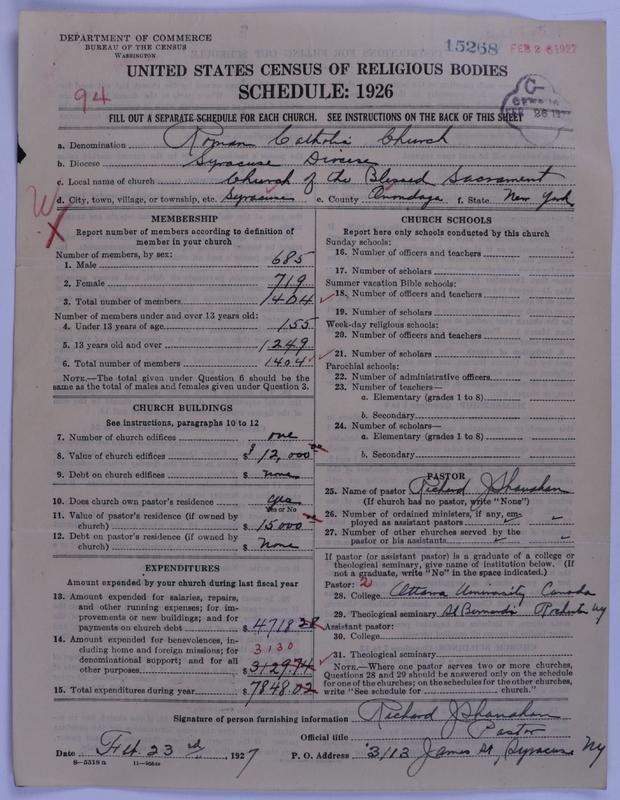 DEPARTMENT OF COMMERCE
BUREAU OF THE CENSUS
WASHINGTON
15268 FEB 26 1927
UNITED STATES CENSUS OF RELIGIOUS BODIES
94
SCHEDULE: 1926
FILL OUT A SEPARATE SCHEDULE FOR EACH CHURCH. SEE INSTRUCTIONS ON THE BACK OF THIS SHEET
a. Denomination Roman Catholic Church
b. Diocese Syracuse Diocese
c. Local name of church Church of the Blessed Sacrament
d. City, town, village, or township, etc. Syracuse e. County Onondaga f. State New York
MEMBERSHIP
Report number of members according to definition of
member in your church
Number of members, by sex:
1. Male 685
2. Female 719
3. Total number of members 1404
Number of members under and over 13 years old:
4. Under 13 years of age 155
5. 13 years old and over 1249
6. Total number of members 1404
NOTE.—The total given under Question 6 should be
the same as the total of males and females given under Question 3.
CHURCH BUILDINGS
See instructions, paragraphs 10 to 12
7. Number of church edifices one
8. Value of church edifices $ 12,000
9. Debt on church edifices $ none
10. Does church own pastor's residence yes
Yes or No
11. Value of pastor's residence (if owned by
church) $ 15000
12. Debt on pastor's residence (if owned by
church) $ None
EXPENDITURES
Amount expended by your church during last fiscal year
13. Amount expended for salaries, repairs,
and other running expenses; for im-
provements or new buildings; and for
payments on church debt $ 4718 28
14. Amount expended for benevolences, in-
cluding home and foreign missions; for
denominational support; and for all
other purposes $ 3129.74
3130
15. Total expenditures during year $ 7848.02
CHURCH SCHOOLS
Report here only schools conducted by this church
Sunday schools:
16. Number of officers and teachers
17. Number of scholars
Summer vacation Bible schools:
18. Number of officers and teachers
19. Number of scholars
Week-day religious schools:
20. Number of officers and teachers
21. Number of scholars
Parochial schools:
22. Number of administrative officers
23. Number of teachers—
a. Elementary (grades 1 to 8)
b. Secondary
24. Number of scholars—
a. Elementary (grades 1 to 8)
b. Secondary
PASTOR
25. Name of pastor Richard J Shanahan
(If church has no pastor, write "None")
26. Number of ordained ministers, if any, em-
ployed as assistant pastors
27. Number of other churches served by the
pastor or his assistants
If pastor (or assistant pastor) is a graduate of a college or
theological seminary, give name of institution below. (If
not a graduate, write "No" in the space indicated.)
Pastor: 2
28. College Ottawa University Canada
29. Theological seminary St Bernards Rochester NY
Assistant pastor:
30. College
31. Theological seminary
NOTE.—Where one pastor serves two or more churches,
Questions 28 and 29 should be answered only on the schedule
for one of the churches; on the schedules for the other churches,
write "See schedule for church."
Signature of person furnishing information Richard J Shanahan
Official title Pastor
Date Feb. 23rd, 1927 P. O. Address 3113 James St, Syracuse NY
8—5518 a